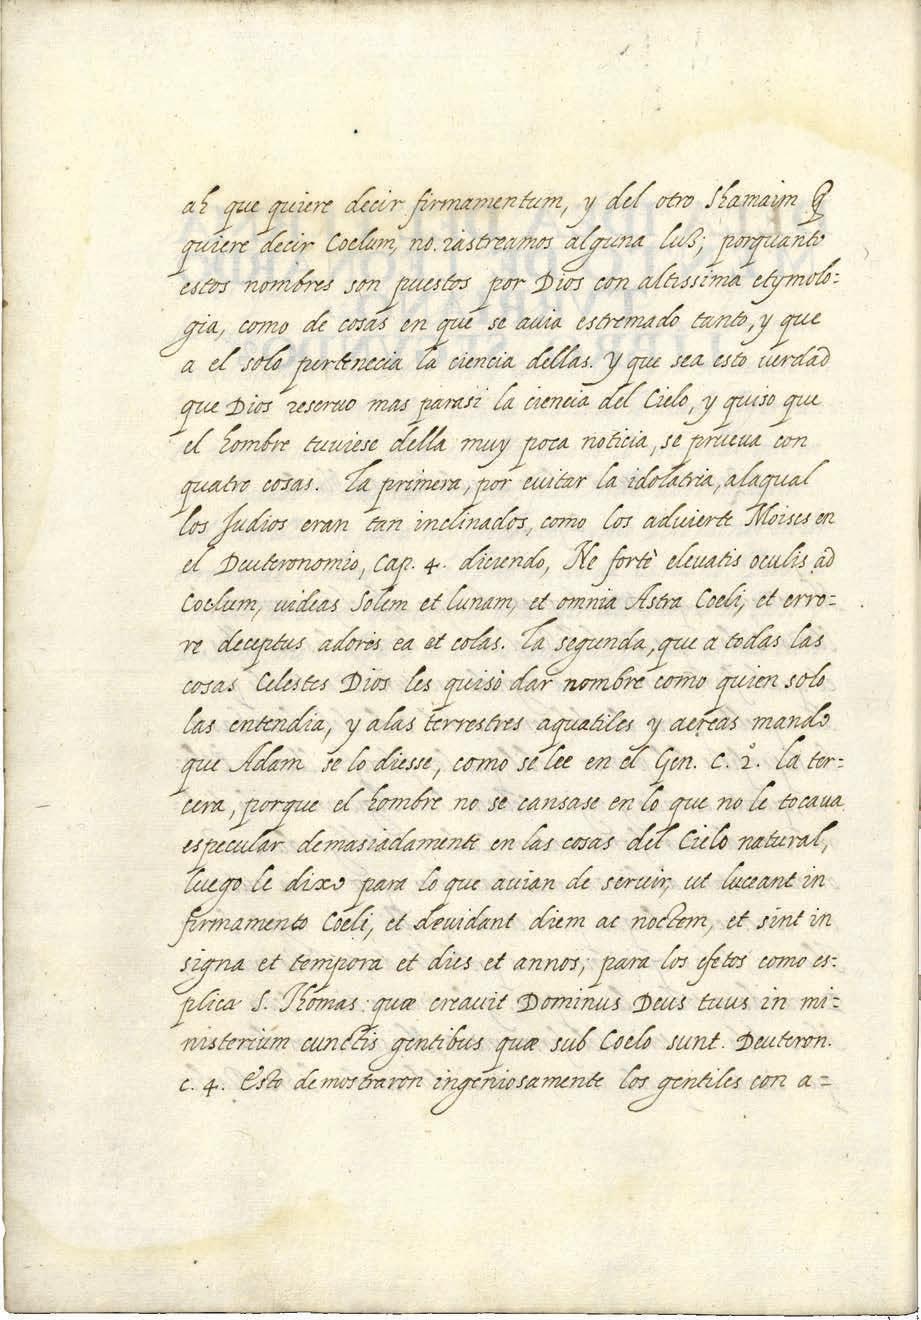 ah que quiere decir firmamentum, y del otro Shamaim q
quiere decir Coelum, no rastreamos alguna luß; porquanto
estos nombres son puestos por Dios con altissima etymolo=
gia, como de cosas en que se auia estremado tanto, y que
a el solo pertenecia la ciencia dellas. Y que sea esto verdad
que Dios reseruo mas parasi la ciencia del Cielo, y quiso que
el hombre tuviese della muy poca noticia, se prueua con
quatro cosas. La primera, por euitar la idolatria, alaqual
los Judios eran tan inclinados, como los aduierte Moises en
el Deuteronomio, Cap. 4. diciendo, Ne fortè eleuatis oculis ad
Coelum, uideas Solem et lunam, et omnia Astra Coeli, et erro=
re deceptus adores ea et colas. La segunda, que a todas las
cosas Celestes Dios les quiso dar nombre como quien solo
las entendia, y alas terrestres aquatiles y aereas mando
que Adam se lo diesse, como se lee en el Gen. C. 2. la ter=
cera, porque el hombre no se cansase en lo que no le tocaua
especular demasiadamente en las cosas del Cielo natural,
luego le dixo para lo que auian de seruir, ut luceant in
firmamento Coeli, et deuidant diem ac noctem, et sint in
signa et tempora et dies et annos, para los efetos como es=
plica S. Thomas quæ creauit Dominus Deus tuus in mi=
nisterium cunctis gentibus quæ sub Coelo sunt. Deuteron.
c. 4. Esto demostraron ingeniosamente los gentiles con a=